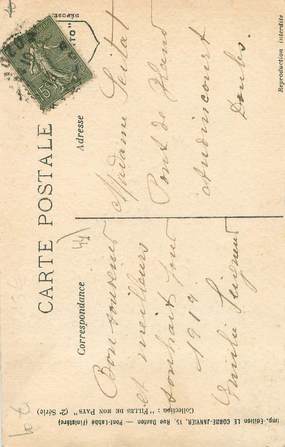 CARTE POSTALE
Correspondance
Adresse
Bon souvenir
et meilleurs
souhait pour
1917
Emilie
Madame
Pont de
Audincourt
Doubs.
Reproduction interdite
DÉPOSÉ
15
44
Imp.-Edition LE CORRE-JANVIER, 15, Rue Danton — Pont-Labbé (Finistère)
Collection: "FILLES DE MON PAYS" (2e Série)